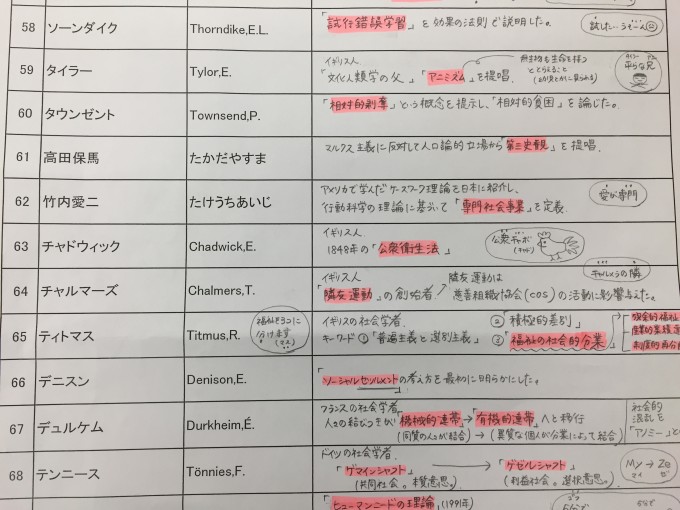 58 ソーンダイク Thorndike,E.L. 「試行錯誤学習」を効果の法則で説明した。
59 タイラー Tylor,E. イギリス人
「文化人類学の父」「アニミズム」を提唱.
無生物も生命を持つ
ととらえること
60 タウンゼント Townsend,P. 「相対的剥奪」という概念を提示し、「相対的貧困」を論じた。
61 高田保馬 たかだやすま マルクス主義に反対して人口論的立場から「第三史観」を提唱.
62 竹内愛二 たけうちあいじ アメリカで学んだケースワーク理論を日本に紹介し、
行動科学の理論に基づいて「専門社会事業」を定義.
愛が専門
63 チャドウィック Chadwick,E. イギリス人
1848年の「公衆衛生法」
公衆チャボ
64 チャルマーズ Chalmers,T. イギリス人
「隣友運動」の創始者
隣友運動は
慈善組織協会(COS)の活動に影響与えた。
チャルメラの隣
65 ティトマス Titmus,R. 福祉を3つに
分けます
イギリスの社会学者.
キーワード ①「普遍主義と選別主義」
②「積極的差別」
③「福祉の社会的分業」
66 デニスン Denison,E. 「ソーシャルセツルメント」の考え方を最初に明らかにした。
67 デュルケム Durkheim,É. フランスの社会学者
人々の結びつきが「機械的連帯」→「有機的連帯」へと移行
(同質の人々が結合)→(異質な個人が分業によって結合)
社会的
混乱を
「アノミー」と
68 テンニース Tönnies,F. ドイツの社会学者.
「ゲマインシャフト」→「ゲゼルシャフト」
(共同社会。本質意思。) (利益社会。選択意思。)
My → Ze
マイ ゼ
「ヒューマンニードの理論」(1991年)